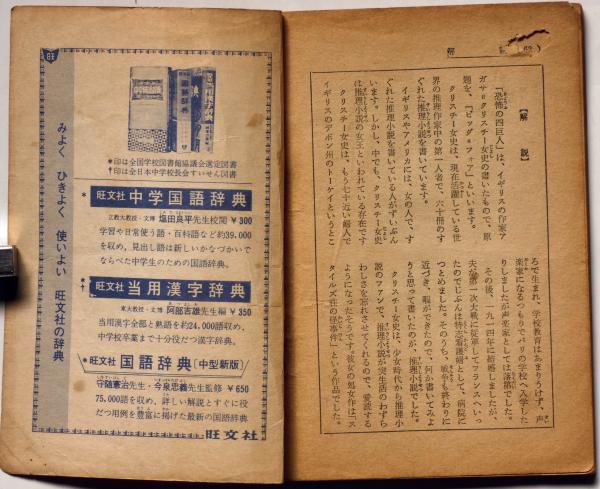 旺
みよく ひきよく 使いよい 旺文社の辞典
*印は全国学校図書館協議会選定図書
†印は全日本中学校長会すいせん図書
* 旺文社 中学国語辞典
立教大教授・文博 塩田良平先生校閲 ¥300
学習や日常使う語・百科語など約39,000
を収め,見出し語は新しいかなづかいで
ならべた中学生のための国語辞典。
*† 旺文社 当用漢字辞典
東大教授・文博 阿部吉雄先生編 ¥350
当用漢字全部と熟語を約24,000語収め,
中学校卒業まで十分役だつ漢字辞典。
*旺文社 国語辞典〔中型新版〕
守随憲治先生・今泉忠義先生監修 ¥650
75,000語を収め,詳しい解説とすぐに役
だつ用例を豊富に掲げた最新の国語辞典
旺文社
解
【解説】
「恐怖の四巨人」は、イギリスの作家ア
ガサ=クリスチー女史の書いたもので、原
題を、『ビッグ=フォア』といいます。
クリスチー女史は、現在活躍している世
界の推理作家中の第一人者で、六十冊のす
ぐれた推理小説を書いています。
イギリスやアメリカには、女の人で、す
ぐれた推理小説を書いている人がずいぶん
います。しかし、中でも、クリスチー女史
は推理小説の女王といわれている存在です
クリスチー女史は、もう七十近い婦人で
イギリスのデボン州のトーケイというとこ
ろで生まれ、学校教育はあまりうけず、声
楽家になるつもりでパリの学校へ入学した
りしましたが声楽家としては落第でした。
その後、一九一四年に結婚しましたが、
夫が第一次大戦に従軍してフランスへいっ
たのでじぶんは特志看護婦として、病院に
つとめました。そのうち、戦争も終わりに
近づき、暇ができたので、何か書いてみよ
うと思って書いたのが、推理小説でした。
クリスチー女史は、少女時代から推理小
説のファンで、推理小説が実生活のわずら
わしさを忘れさせてくれるので、愛読する
ようになったそうです。彼女の処女作は、『ス
タイルズ荘の怪事件』という作品でした。